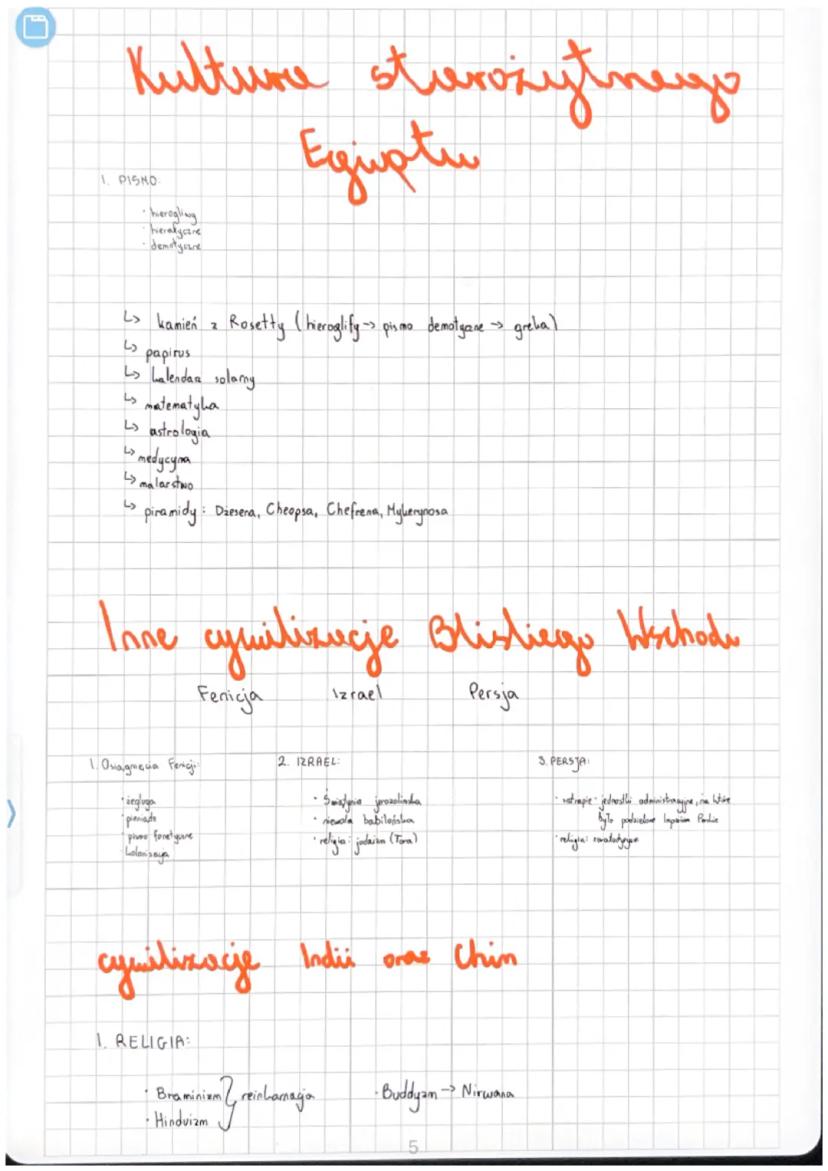 Kultura starożytnego
Egiptu
1. PISMO:
· hieroglify
· hieratyczne
· demotyczne
↳ kamień z Rosetty (hieroglify → pismo demotyczne → greka)
↳ papirus
↳ kalendarz solarny
↳ matematyka
↳ astrologia
↳ medycyna
↳ malarstwo
↳ piramidy: Dżesera, Cheopsa, Chefrena, Mykerynosa
Inne cywilizacje Bliskiego Wschodu
Fenicja Izrael Persja
1. Osiągnięcia Fenicji:
· żegluga
· pieniądz
· pismo fonetyczne
kolonizacja
2. IZRAEL:
· Świątynia jerozolimska
· niewola babilońska
· religia: judaizm (Tora)
3. PERSJA:
· satrapie - jednostki administracyjne, na które
było podzielone Imperium Perskie
· religia:
cywilizacje Indii oraz Chin
1. RELIGIA:
· Braminizm } reinkarnacja · Buddyzm → Nirwana
· Hinduizm
5